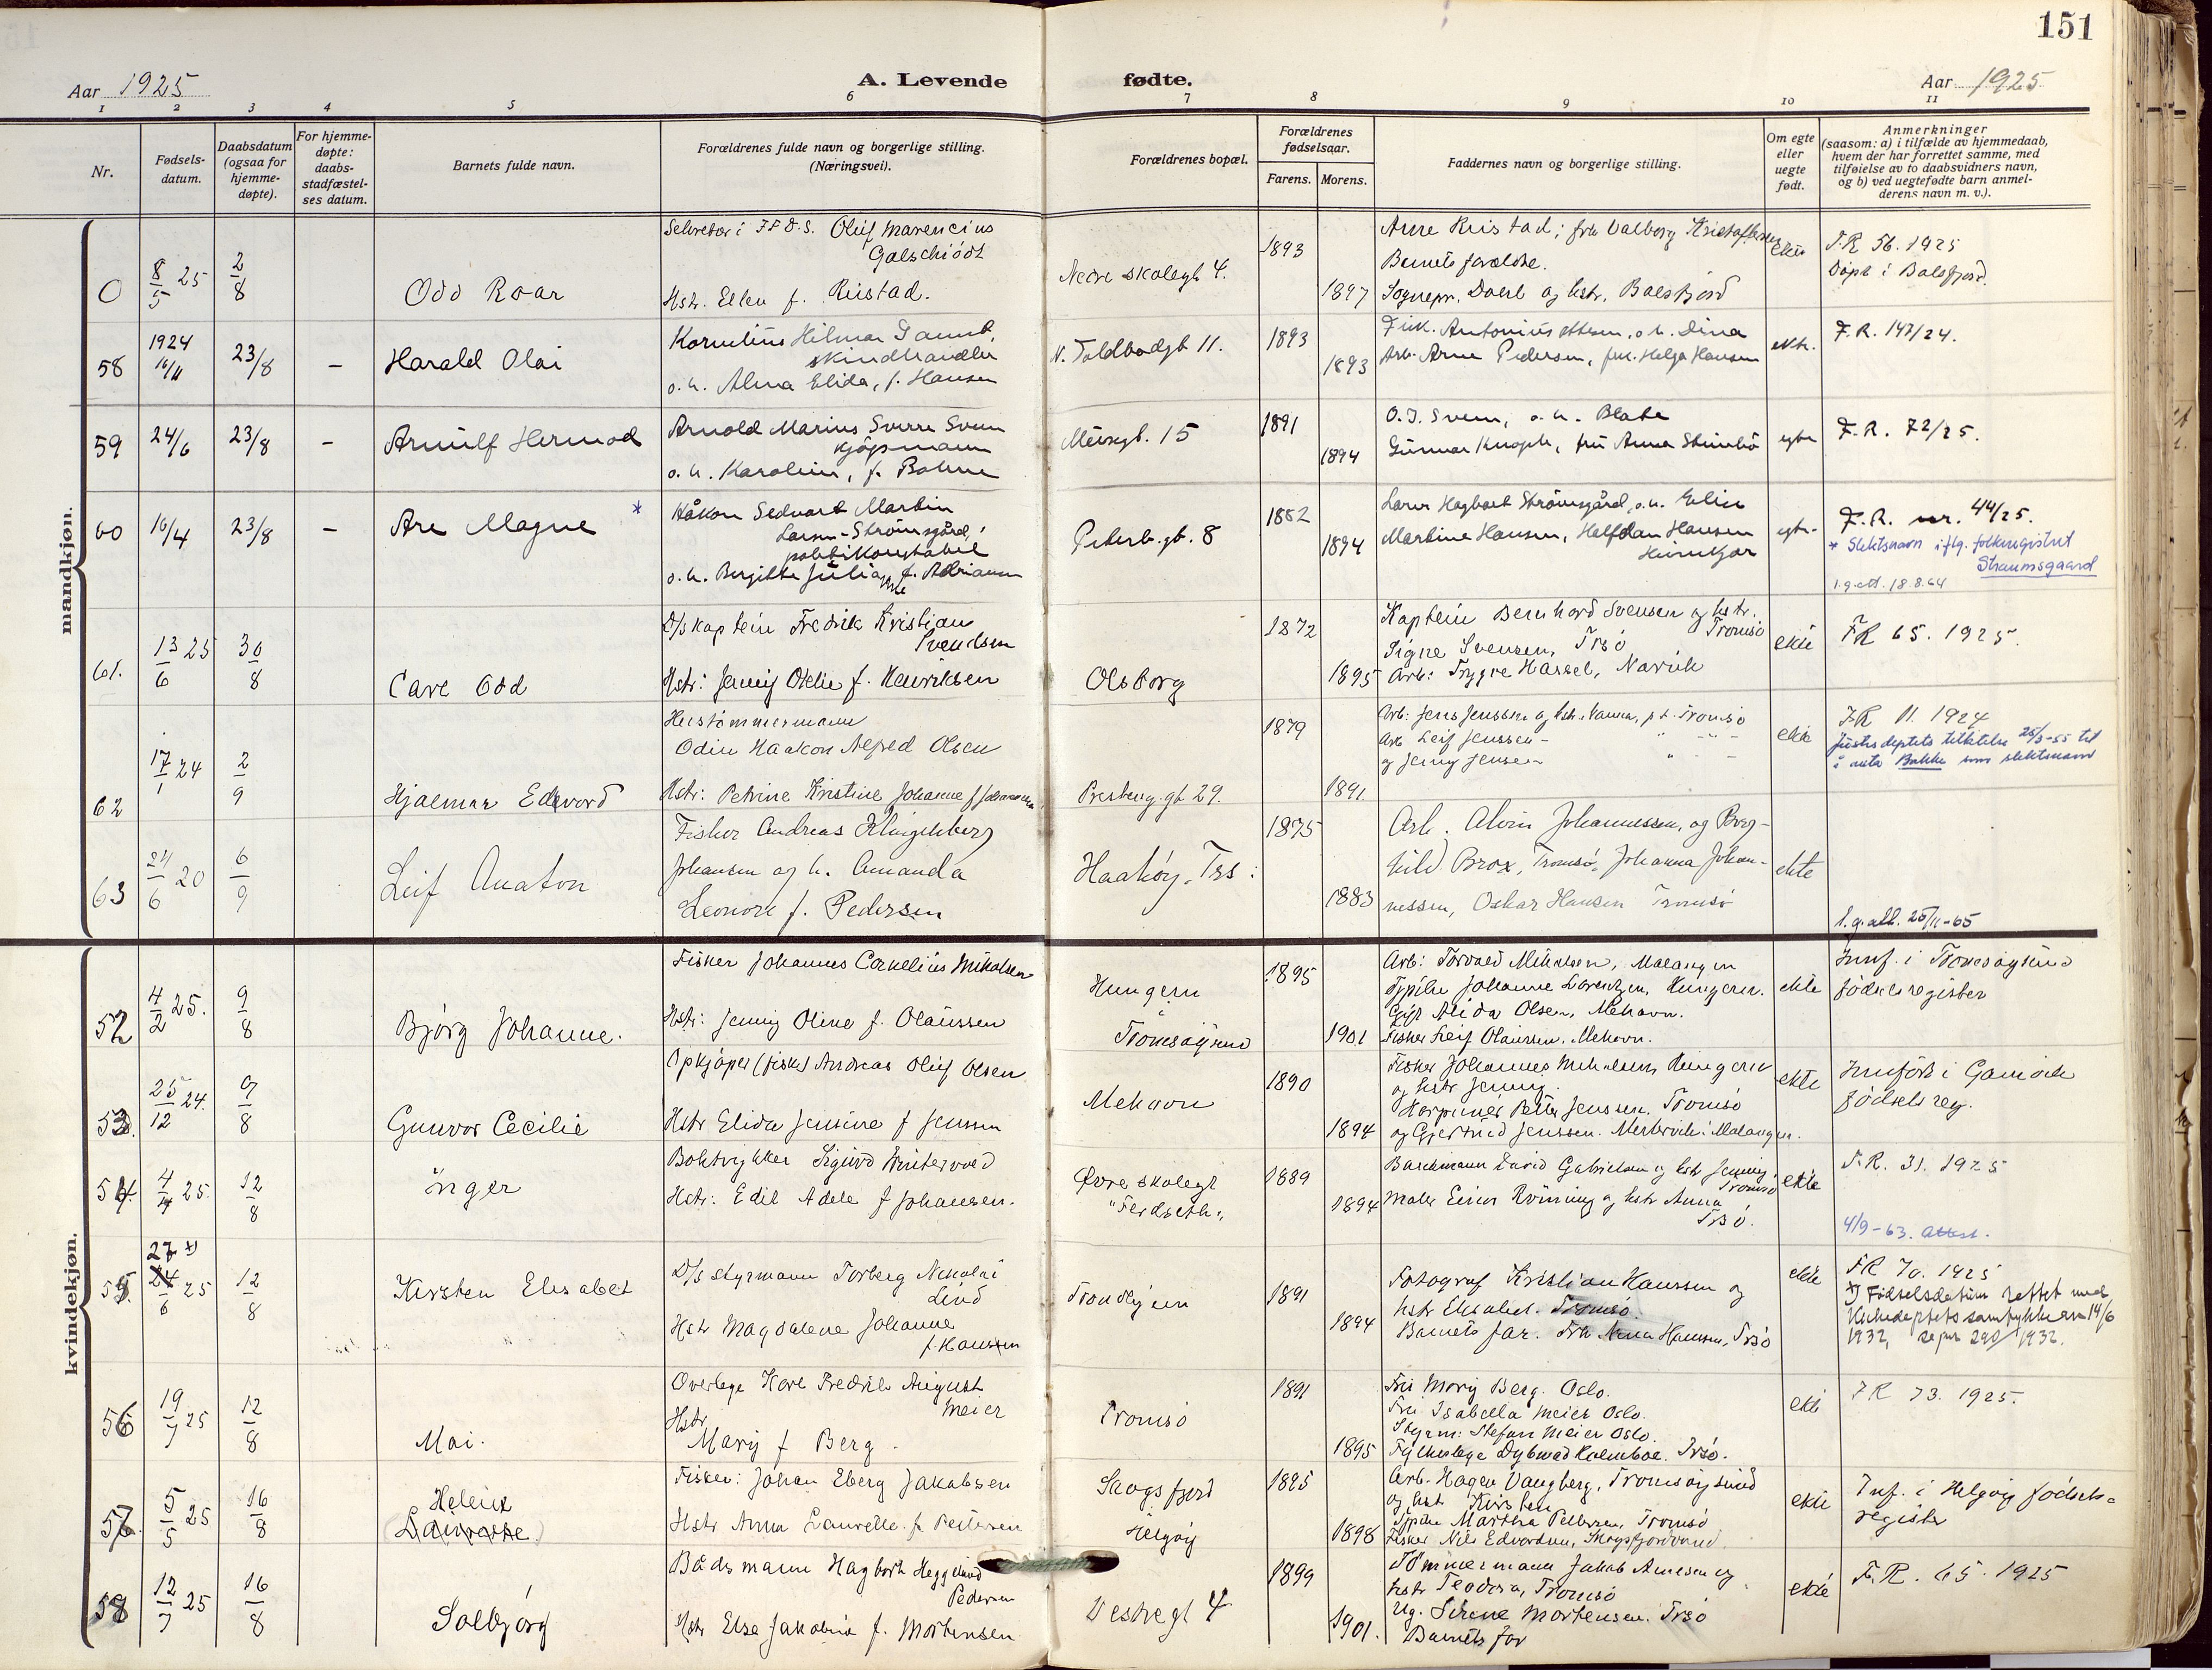 151
Aar 1925
A. Levende fødte.
Aar 1925
1 2 3 4 5 6 7 8 9 10 11
Nr.
Fødsels-
datum.
Daabsdatum
(ogsaa for
hjemme-
døpte).
For hjemme-
døpte:
daabs-
stadfæstel-
ses datum.
Barnets fulde navn.
Forældrenes fulde navn og borgerlige stilling.
(Næringsvei).
Forældrenes bopæl.
Forældrenes
fødselsaar.
Farens. Morens.
Faddernes navn og borgerlige stilling.
Om egte
eller
uegte
født.
Anmerkninger
(saasom: a) i tilfælde av hjemmedaab,
hvem der har forrettet samme, med
tilføielse av to daabsvidners navn,
og b) ved uegtefødte barn anmel-
derens navn m. v.).
mandkjøn.
0 8/5 25 2/8 Odd Roar
Sekretær i Oluf Marencius
Galschiödt
Hstr. Ellen f. Ristad.
Nedre skolegt 4.
1893
1897
Arne Ristad; frk Valborg
Barnets forældre.
Sognepr. Dael og hstr. Balsfjord
ekte
F.R 56. 1925
Döpt i Balsfjord.
58 1924 16/11 23/8 – Harald Olai
Kornelius Hilmar
skindhandler
o. h. Alma Elida, f. Hansen
N. Toldbodgt 11.
1893
1893
Antonius o. h. Dina
Arb. Arne Pedersen, frk. Helga Hansen
ekte.
F.R. 147/24.
59 24/6 23/8 – Arnulf Hermod
Arnold Marius Sverre Svem
kjöpmann
o. h. Karoline, f. Bohne
15
1891
1894
O. J. Svem, o. h. Beate
Gunnar fru Anna
egte
F.R. 72/25.
60 16/4 23/8 – Are Magne *
Håkon Sedvart Martin
Larsen-Strömsgård,
politikonstabel
o. h. Bergitte Juliane f. Adriansen
Peterb.gt. 8
1882
1894
Lærer Hagbart Strömsgård, o. h. Elin
Martine Hansen, Halfdan Hansen
egte
F.R. nr. 44/25.
* Slektsnavn iflg. folkeregistret
Straumsgaard
1.g.att. 18.8.64
61. 13/6 25 30/8 Carl Odd
D/s kaptein Fredrik Kristian
Svendsen
Hstr: Jenny Otelie f. Henriksen
Olsborg
1872
1895
Kaptein Bernhard Svensen og hstr.
Tromsö
Signe Svensen, Trsö
Arb: Trygve Hassel, Narvik
ekte
FR 65. 1925.
62 17/1 24 2/9 Hjalmar Edvard
Hustömmermann
Odin Haakon Alfred Olsen
Hstr: Petrine Kristine Johanne f Johansen
Presteng.gt 29.
1879
1891.
Arb: Jens Jenssen og hstr. Vanna, p t. Tromsö
Arb Leif Jenssen –
og Jenny Jensen
ekte
FR 11. 1924
Justisdeptets tillatelse 25/3-55 til
å anta Bakke som slektsnavn
63 24/6 20 6/9 Leif Anaton
Fisker Andreas Klingenberg
Johansen og h. Amanda
Leonore f. Pedersen
Haaköy. Trs:
1875
1883
Arb. Alvin Johannessen, og Borg-
hild Brox, Tromsö, Johanna Johan-
nessen, Oskar Hansen Tromsö
ekte
1.g.att. 25/11-65
kvindekjøn.
52 4/2 25. 9/8 Bjórg Johanne.
Fisker Johannes Cornelius Mikalsen
Hstr: Jenny Oline f. Olaussen
Hungern
Tromsöysund
1895
1901
Arb: Torvald Mikalsen, Malangen
Tjpike Johanne Lorentzen, Hungeren.
Gift Alida Olsen, Mehavn.
Fisker Leif Olaussen. Mehavn.
ekte
Innf. i Tromsöysund
födselsregister
53. 25/12 24. 9/8 Gunvor Cecilie
Opkjöper (fisk) Andreas Oluf Olsen
Hstr Elida Jensine f Jenssen
Mehavn
1890
1894
Fisker Johannes Mikalsen Hungeren
og hstr Jenny.
Petter Jenssen. Tromsö
og Gjertrud Jenssen. Mestervik i Malangen.
ekte
Innfört i Gamvik
födselsreg.
54. 4/4 25. 12/8 Inger
Boktrykker Sigurd Wintervold
Hstr: Edil Adele f Johansen.
Övre skolegt
"Ferdseth"
1889
1894
Baadsmann David Gabrielsen og hstr Jenny.
Tromsö
Maler Einar Rönning og hstr Anna
Trsö.
ekte
F.R. 31. 1925
4/9-63. attest.
55. 27 *) 24/6 25 12/8 Kirsten Elisabet
D/s styrmann Torberg Nikolai
Lind
Hstr Magdalene Johanne
f. Hanssen
Trondhjem
1891
1894
Fotograf Kristian Hanssen og
hstr Elisabet. Tromsö.
Barnets far. Frk Nanna Hanssen, Trsö
ekte
FR 70. 1925
*) Födselsdatum rettet med
Kirkedeptets samtykke av 14/6
1932, se jnr 290/1932.
56 19/7 25 12/8 Mai.
Overlege Karl Fredrik August
Meier
Hstr
Mary f Berg.
Tromsö
1891
1895
Fru Mary Berg. Oslo.
Fru Isabella Meier Oslo.
Styrm: Stefan Meier Oslo.
Fylkeslege Dybwad Holmboe. Trsö.
ekte
FR 73. 1925.
57. 5/5 25 16/8 Helene
(Laurette)
Fisker: Johan Eberg Jakobsen
Hstr Anna Laurette f. Pettersen
Skogsfjord
Helgöy
1895
1898
Arb. Hagen Vangberg, Tromsöysund
og hst Kirsten
Tjpike Martha Pettersen, Tromsö
Fisker Nils Edvardsen, Skogsfjordvand.
ekte
Inf. i Helgöy födsels-
register
58 12/7 25 16/8 Solbjörg
Bådsmann Hagbart Heggelund
Pedersen
Hstr Else Jakobine f. Mortensen
Vestregt 4
1899
1901.
Tömmermann Jakob Arnesen og
hstr Teodora, Tromsö
Ug. Serene Mortensen. Trsö
Barnets far
ekte
F.R. 65. 1925